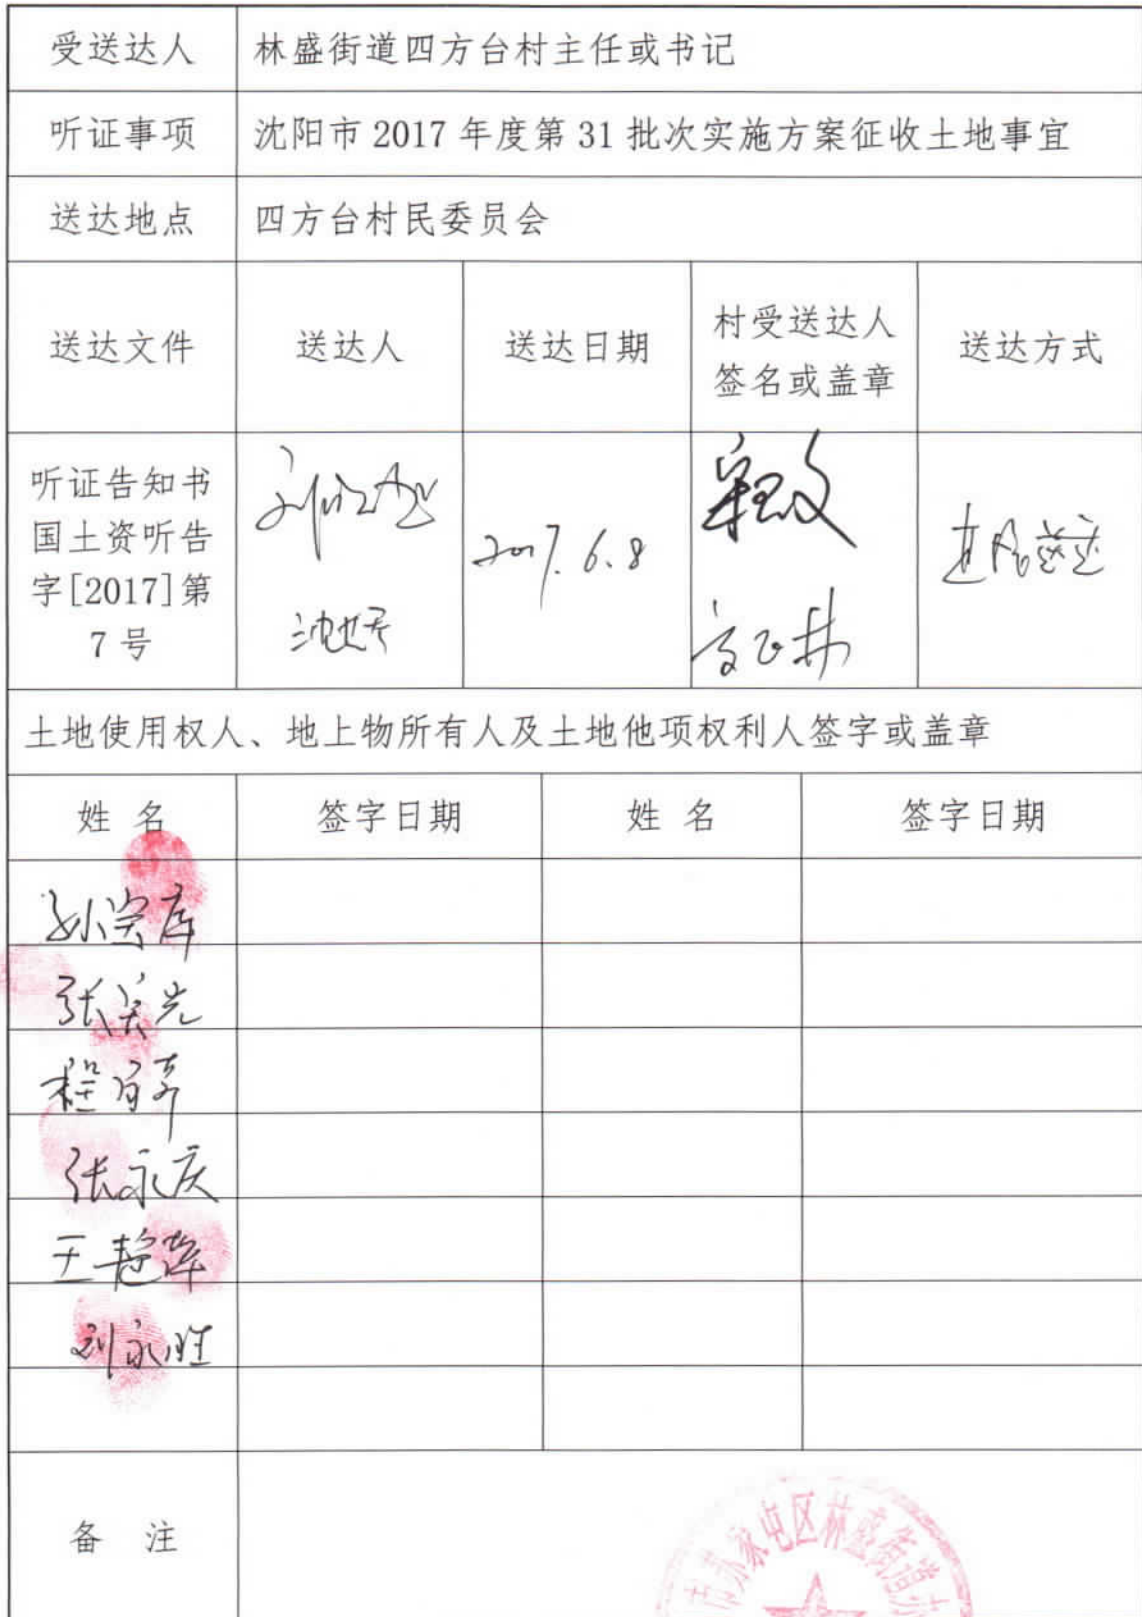 受送达人 林盛街道四方台村主任或书记
听证事项 沈阳市 2017 年度第 31 批次实施方案征收土地事宜
送达地点 四方台村民委员会
送达文件 送达人 送达日期 村受送达人签名或盖章 送达方式
听证告知书
国土资听告
字[2017]第
7 号
2017.6.8
直接送达
土地使用权人、地上物所有人及土地他项权利人签字或盖章
姓 名 签字日期 姓 名 签字日期
孙宝库
张
程
张永庆
王艳萍
刘永胜
备 注
家屯区林盛街道